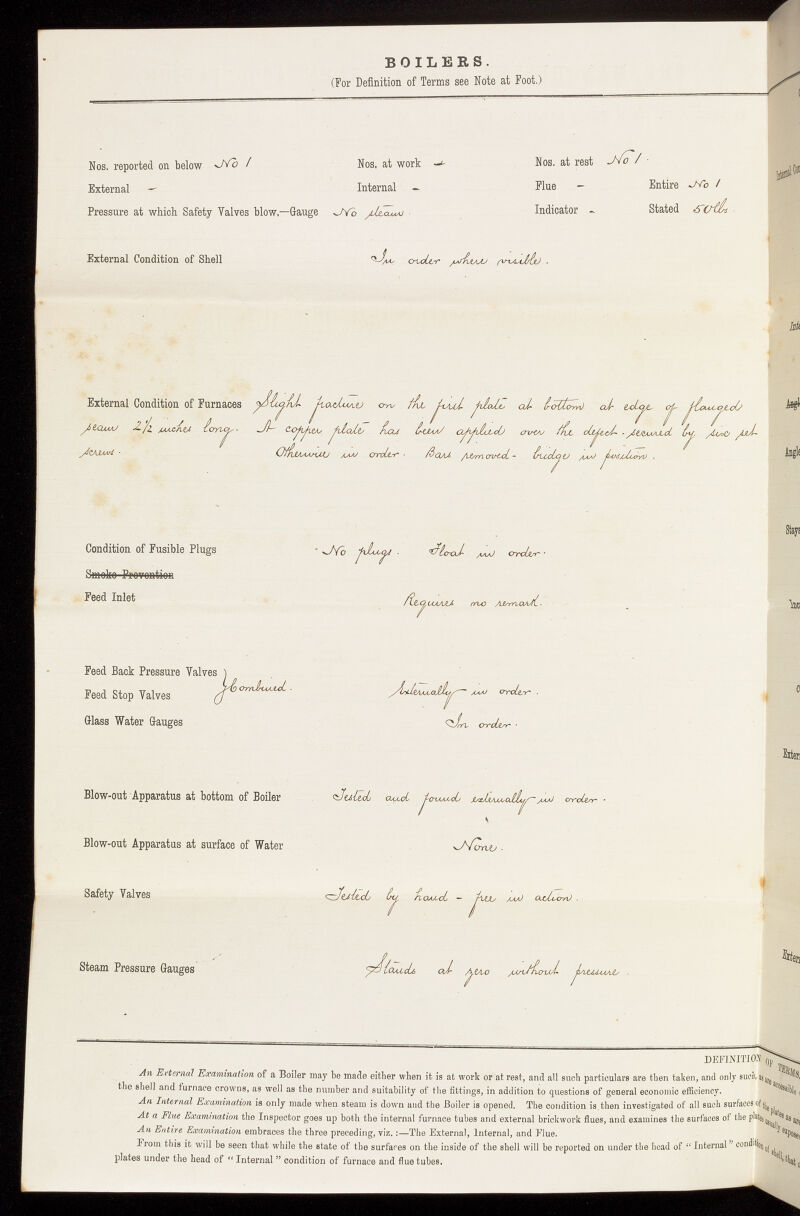 BOILERS.
(For Definition of Terms see Note at Foot.)
Nos. reported on below No 1 Nos. at work - Nos. at rest No 1.
External - Internal - Flue - Entire No 1
Pressure at which Safety Valves blow,—Gauge No steam. Indicator - Stated 50lbs.
External Condition of Shell In order where visible.
External Condition of Furnaces Slight fracture on the first plate at bottom at edge of flanged
seam 2 1/2 inches long. A copper plate has been applied over the defect - secured by six set
screws. Otherwise in order. Bars removed - bridge in position.
Condition of Fusible Plugs No plugs. Float in order.
Smoke Prevention
Feed Inlet Requires no remark.
Feed Back Pressure Valves }
Feed Stop Valves } Combined. Externally in order.
Glass Water Gauges In order.
Blow-out Apparatus at bottom of Boiler Tested and found externally in order.
Blow-out Apparatus at surface of Water None.
Safety Valves Tested by hand - free in action.
Steam Pressure Gauges Stands at zero without pressure.
DEFINITION OF TERMS.
An External Examination of a Boiler may be made either when it is at work or at rest, and all such particulars are then taken, and only such, as are accessible,
the shell and furnace crowns, as well as the number and suitability of the fittings, in addition to questions of general economic efficiency.
An Internal Examination is only made when steam is down and the Boiler is opened. The condition is then investigated of all such surfaces of the plates as are
At a Flue Examination the Inspector goes up both the internal furnace tubes and external brickwork flues, and examines the surfaces of the plates usually
An Entire Examination embraces the three preceding, viz.:—The External, Internal, and Flue.
From this it will be seen that while the state of the surfaces on the inside of the shell will be reported on under the head of "Internal" condition of shell, that
plates under the head of "Internal" condition of furnace and flue tubes.